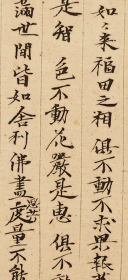 如々来福田之相俱不動不求果報莊
是智色不動花嚴是惠俱不
滿世間皆如舍利佛蓋度量不能